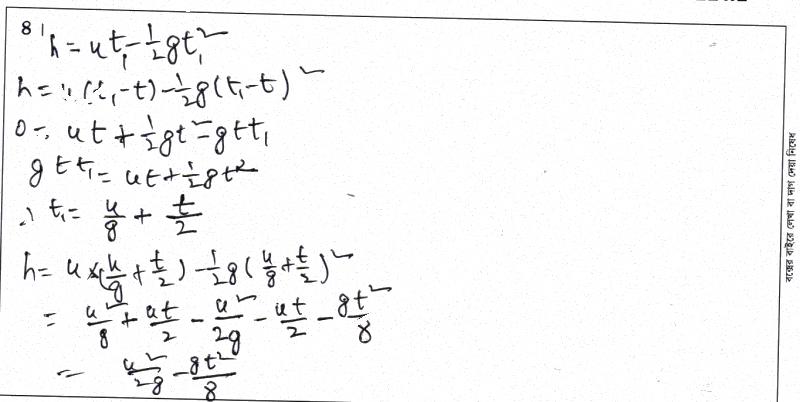 8| h = ut₁ - ½gt₁²
h = u(t₁-t) - ½g(t₁-t)²
0 = ut + ½gt² = gtt₁
gtt₁ = ut + ½gt²
∴ t₁ = u/g + t/2
h = u×(u/g + t/2) - ½g(u/g + t/2)²
= u²/g + ut/2 - u²/2g - ut/2 - gt²/8
= u²/2g - gt²/8
বক্সের বাইরে লেখা বা দাগ দেয়া নিষেধ